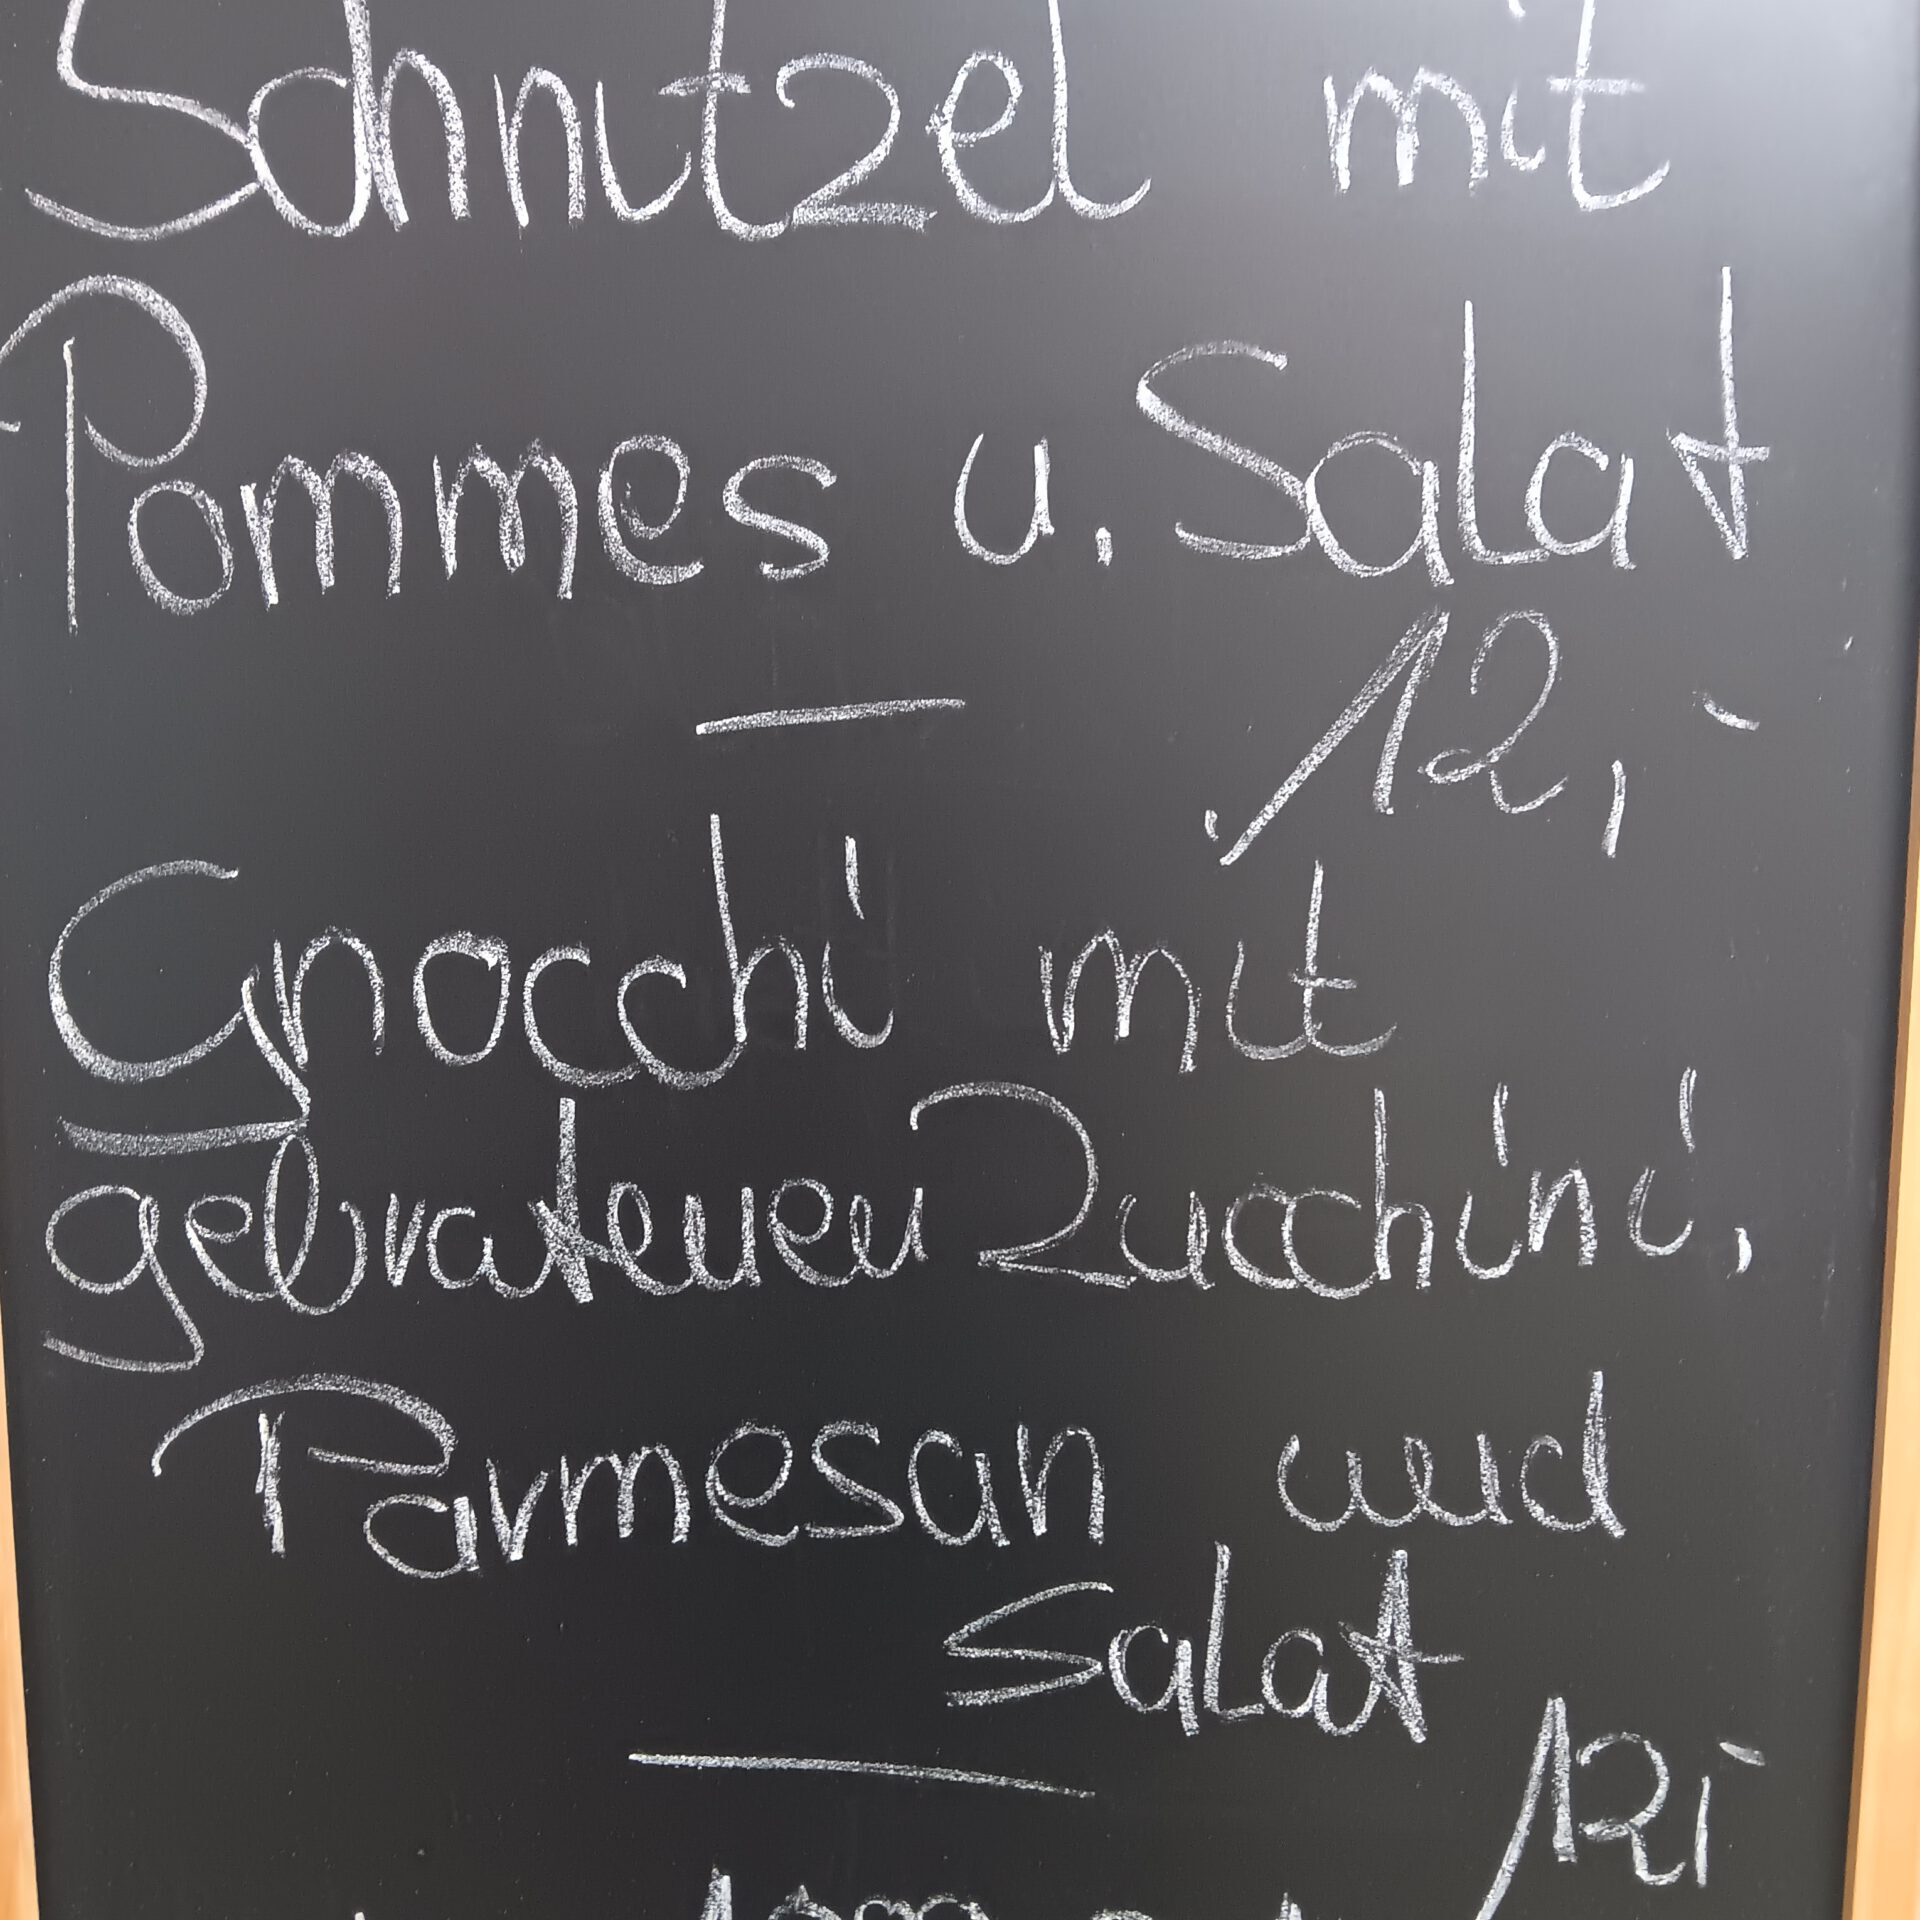 Schnitzel mit
Pommes u. Salat
12,-
Gnocchi mit
gebratenen Zucchini,
Parmesan und
Salat
12,-